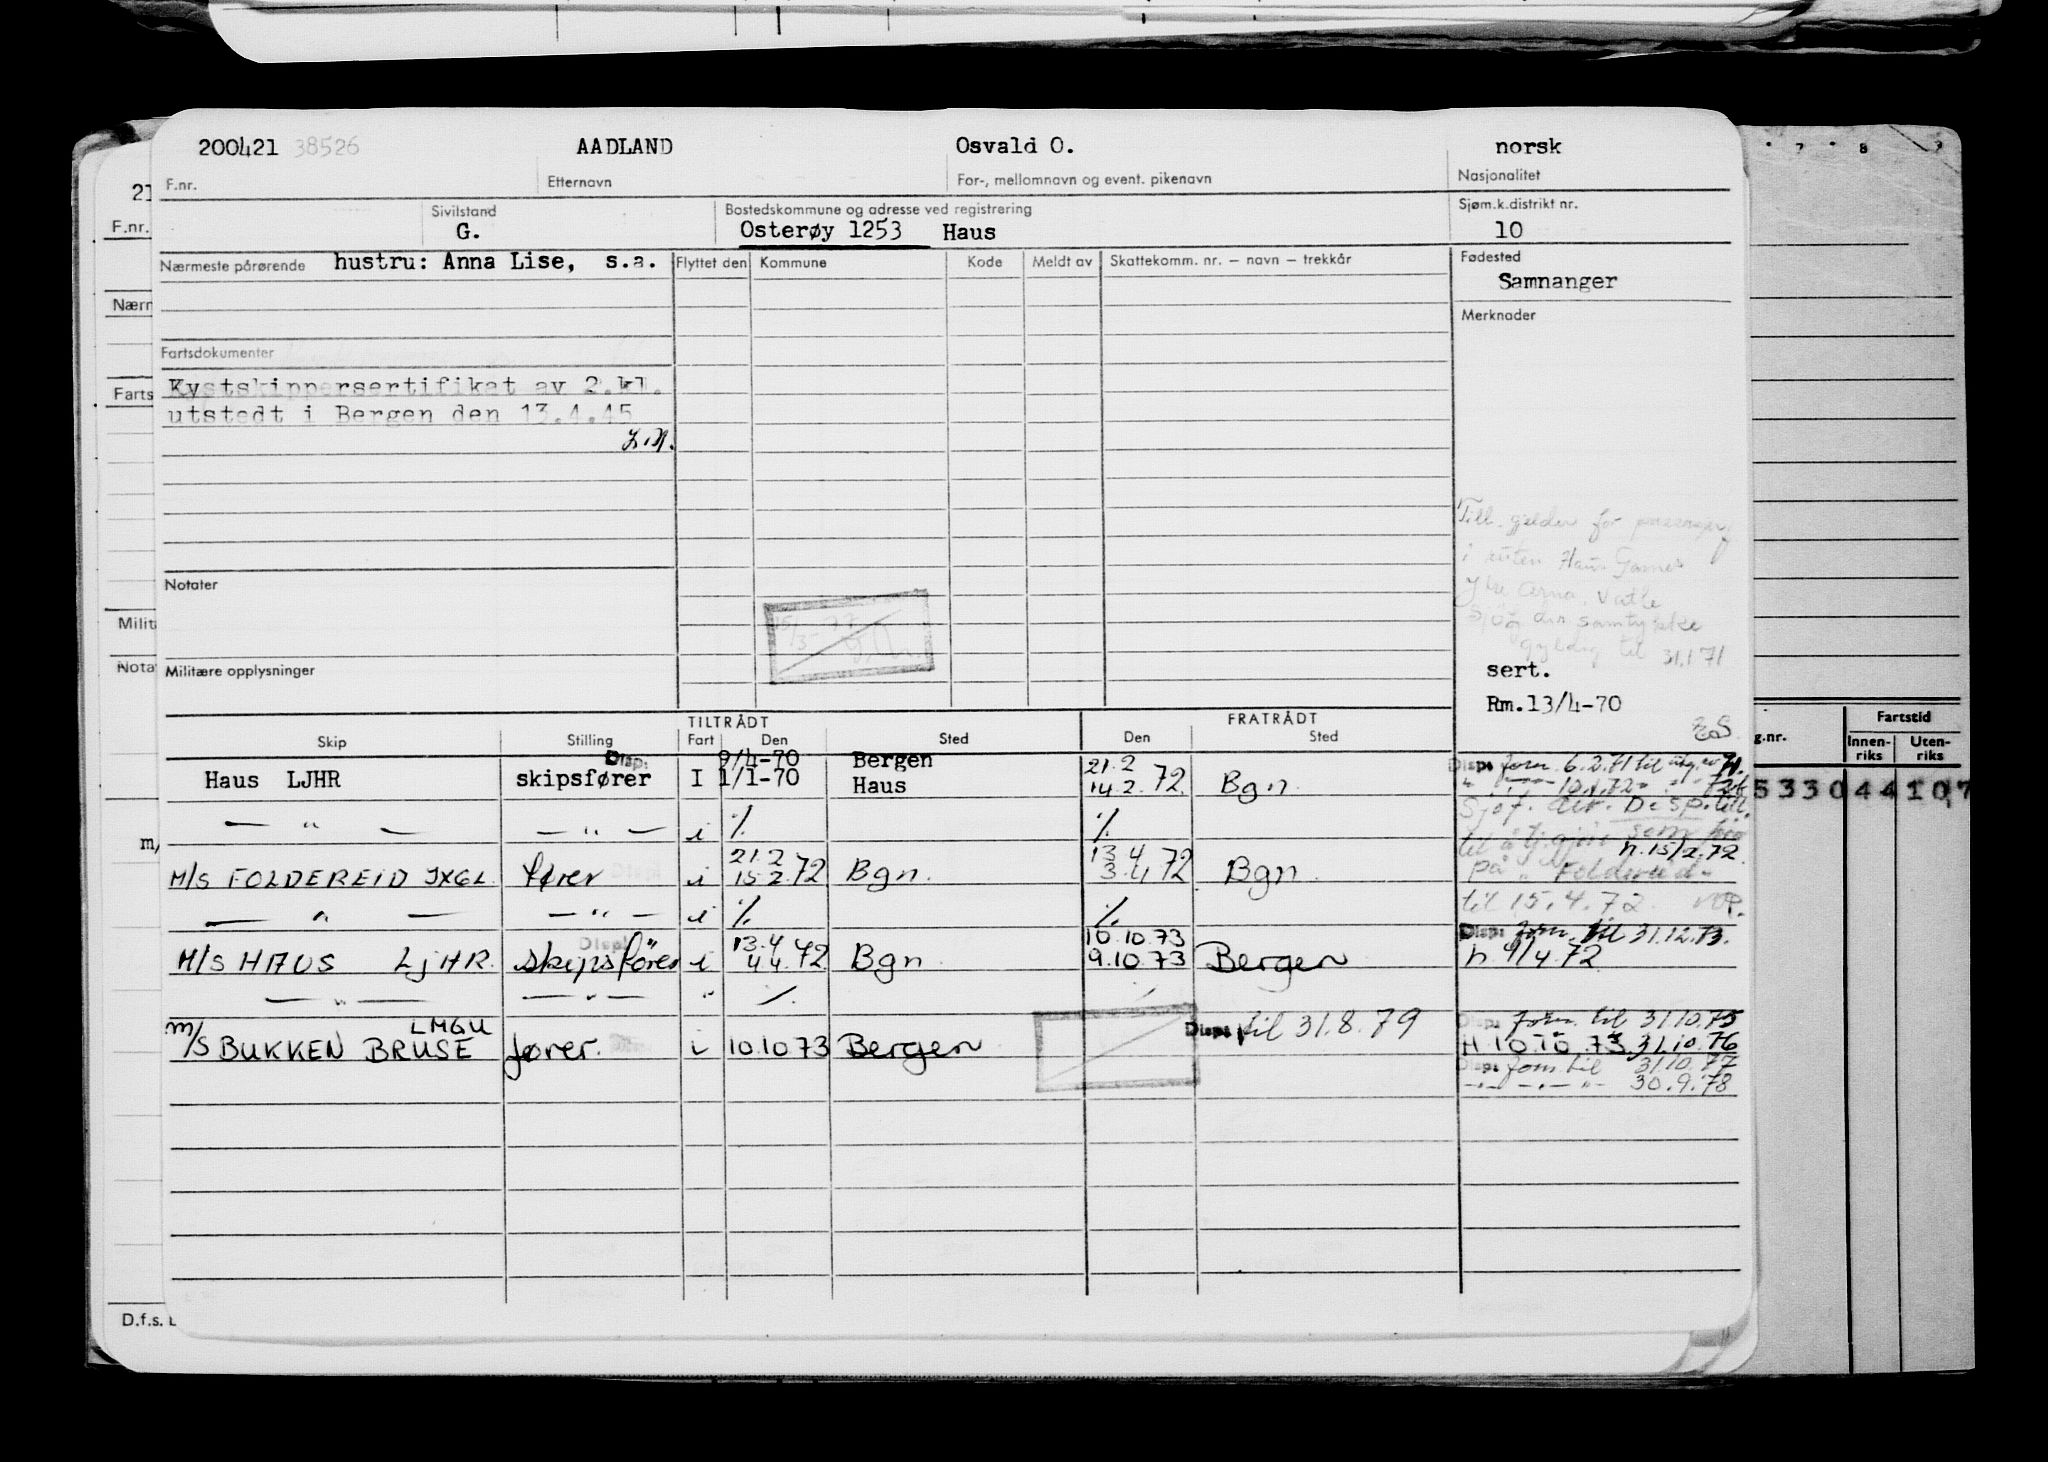 200421 38526 AADLAND Osvald O. norsk
F.nr. Etternavn For-, mellomnavn og event. pikenavn Nasjonalitet
Sivilstand Bostedskommune og adresse ved registrering Sjøm.k.distrikt nr.
G. Osterøy 1253 Haus 10
Nærmeste pårørende hustru: Anna Lise, s.a. Flyttet den Kommune Kode Meldt av Skattekomm. nr. – navn – trekkår Fødested
Samnanger
Merknader
Fartsdokumenter
Kystskippersertifikat av 2.kl.
utstedt i Bergen den 13.4.45
Till. gjelder for
i ruten Haus Garnes
Ytre Arna. Vatle
Sjøf dir samtykke
gyldig til 31.1 71
Notater
15/3-77
Militære opplysninger
sert.
Rm.13/4-70
TILTRÅDT FRATRÅDT
Skip Stilling Fart Den Sted Den Sted
Disp. 9/4-70 Bergen 21.2 Disp. forn. 6.2.71 til
Haus LJHR skipsfører I 1/1-70 Haus 14.2.72 Bgn.
— " — — " — i % % Sjøf. dir. Disp. till.
til å tj.gjøre som
21.2 13.4 h. 15/2.72
M/S FOLDEREID JXGL fører i 15.2.72 Bgn. 3.4.72 Bgn. på " Foldereid -
— " — — " — i % % til 15.4.72
Disp. 13.4 10.10.73 Disp. forn. til 31.12.73.
M/S HAUS LJHR skipsfører i 4.4.72 Bgn 9.10.73 Bergen h 4/4 72
— " — — " — " %
LMGU Disp. til 31.8.79 Disp. forn. til 31.10.75
m/S BUKKEN BRUSE fører. i 10.10.73 Bergen H 10.10.73 31.10.76
Disp. forn. til 31.10.77
— " — — " — 30.9.78
21
F.nr.
Nærn
Farts
Milit
Nota
m/
D.f.s.
7 8
g.nr. Fartstid
Innen-riks Uten-riks
5330 44 107